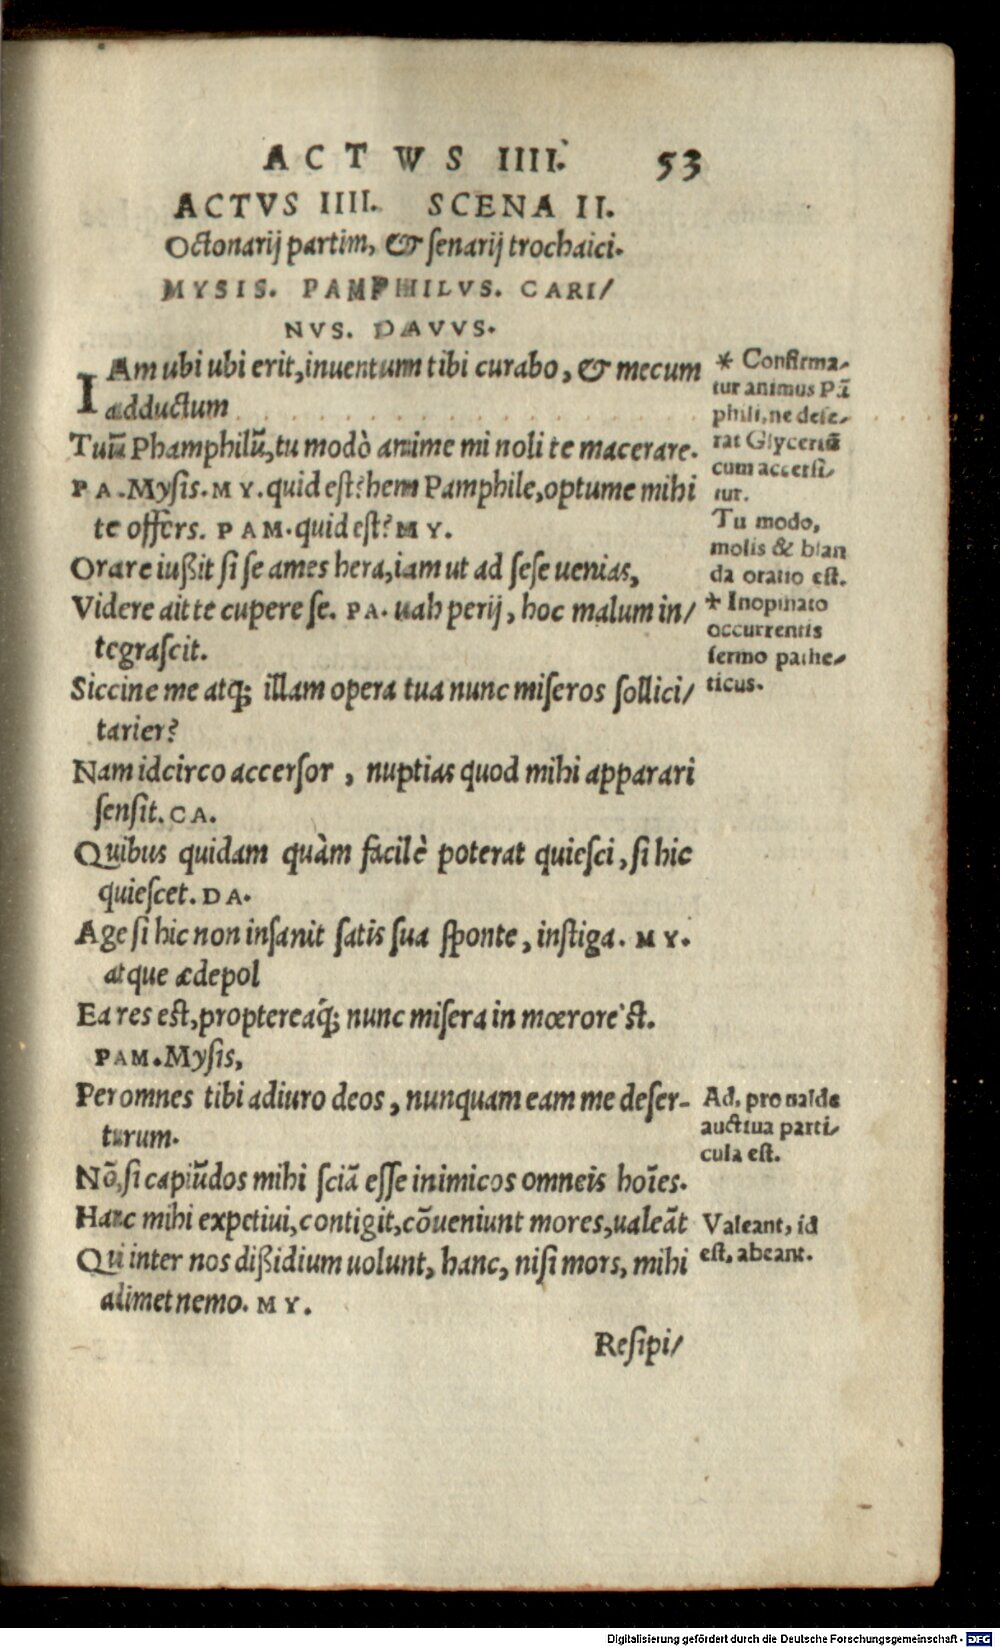 ACTWS IIII. 53
ACTVS IIII. SCENA II.
Octonarij partim, & senarij trochaici.
MYSIS. PAMPHILVS. CARI/
NVS. DAVVS.
IAm ubi ubi erit, inuentum tibi curabo, & mecum
adductum
Tuū Phamphilū, tu modò anime mi noli te macerare.
PA. Mysis. MY. quid est? hem Pamphile, optume mihi
te offers. PAM. quid est? MY.
Orare iußit si se ames hera, iam ut ad sese uenias,
Videre ait te cupere se. PA. uah perij, hoc malum in/
tegrascit.
Siccine me atq; illam opera tua nunc miseros sollici/
tarier?
Nam idcirco accersor, nuptias quod mihi apparari
sensit. CA.
Quibus quidam quàm facilè poterat quiesci, si hic
quiescet. DA.
Age si hic non insanit satis sua sponte, instiga. MY.
atque ædepol
Ea res est, proptereaq́; nunc misera in mœrore'st.
PAM. Mysis,
Per omnes tibi adiuro deos, nunquam eam me deser-
turum.
Nō, si capiūdos mihi sciā esse inimicos omneis hoīes.
Hanc mihi expetiui, contigit, cōueniunt mores, ualeāt
Qui inter nos dißidium uolunt, hanc, nisi mors, mihi
adimet nemo. MY.
Resipi/
* Confirma-
tur animus Pā
phili, ne dese-
rat Glyceriū
cum accersi-
tur.
Tu modo,
molis & blan
da oratio est.
* Inopinato
occurrentis
sermo pathe-
ticus.
Ad, pro ualde
auctiua parti-
cula est.
Valeant, id
est, abeant.
Digitalisierung gefördert durch die Deutsche Forschungsgemeinschaft - DFG